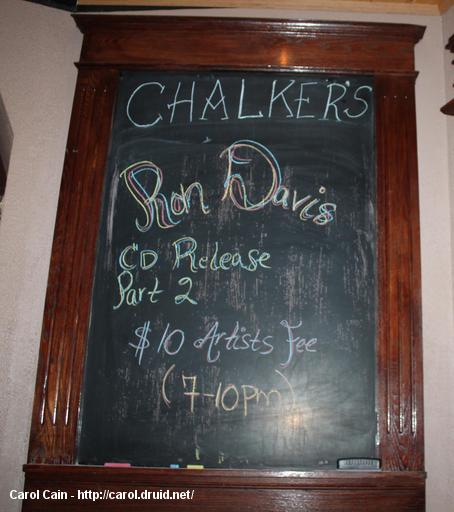 CHALKER'S
Ron Davis
CD Release
Part 2
$10 Artists Fee
(7-10pm)
Carol Cain - http://carol.druid.net/